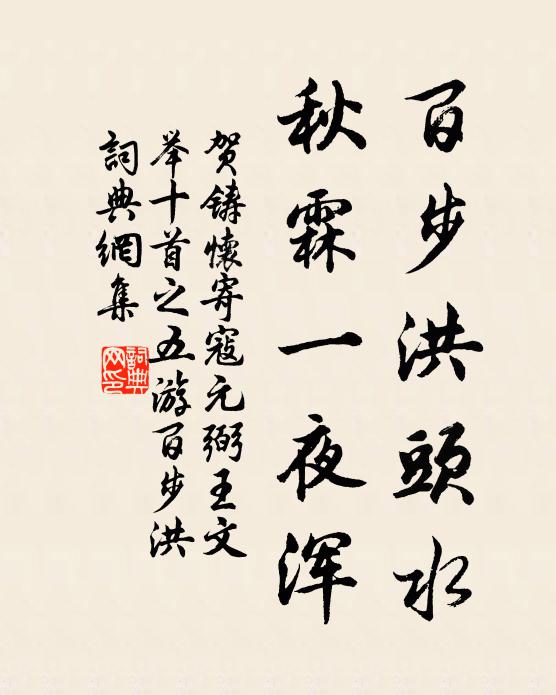 百步洪頭水
秋霖一夜浑
贺鑄懷寄寇元弼王文
举十首之五游百步洪
詞典網集
詞典
网印